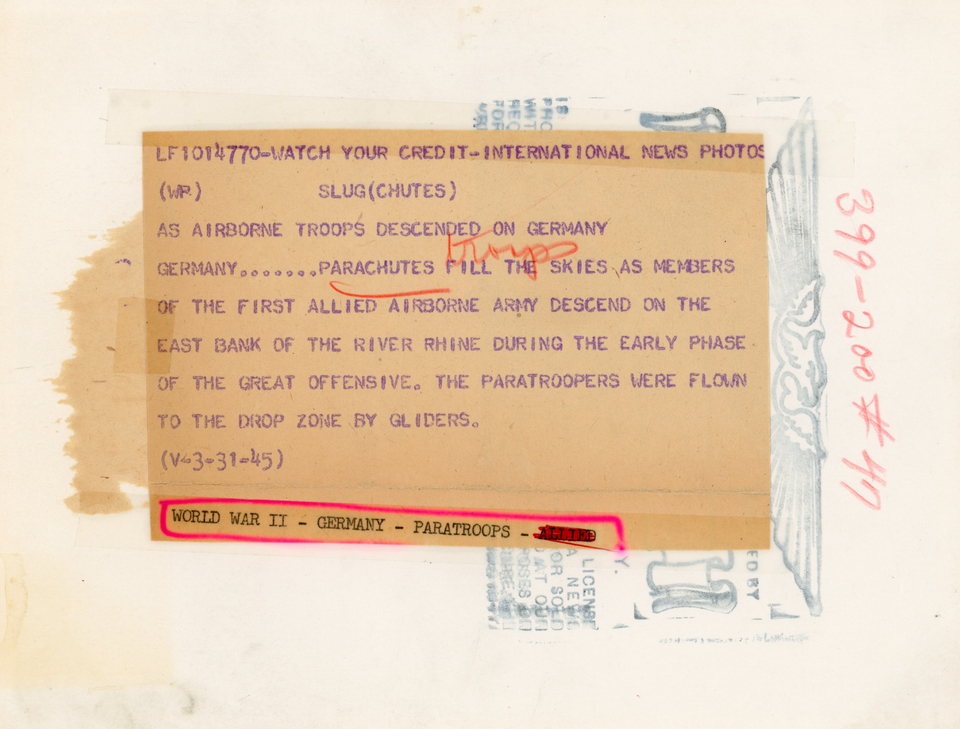 LF1014770-WATCH YOUR CREDIT-INTERNATIONAL NEWS PHOTOS
(WP) SLUG(CHUTES)
AS AIRBORNE TROOPS DESCENDED ON GERMANY
troops
GERMANY.......PARACHUTES FILL THE SKIES AS MEMBERS
OF THE FIRST ALLIED AIRBORNE ARMY DESCEND ON THE
EAST BANK OF THE RIVER RHINE DURING THE EARLY PHASE
OF THE GREAT OFFENSIVE. THE PARATROOPERS WERE FLOWN
TO THE DROP ZONE BY GLIDERS.
(V-3-31-45)
WORLD WAR II - GERMANY - PARATROOPS - ALLIED
399-200#47
ED BY
LICENSE
A NEW
OR SOLD
AT OUR